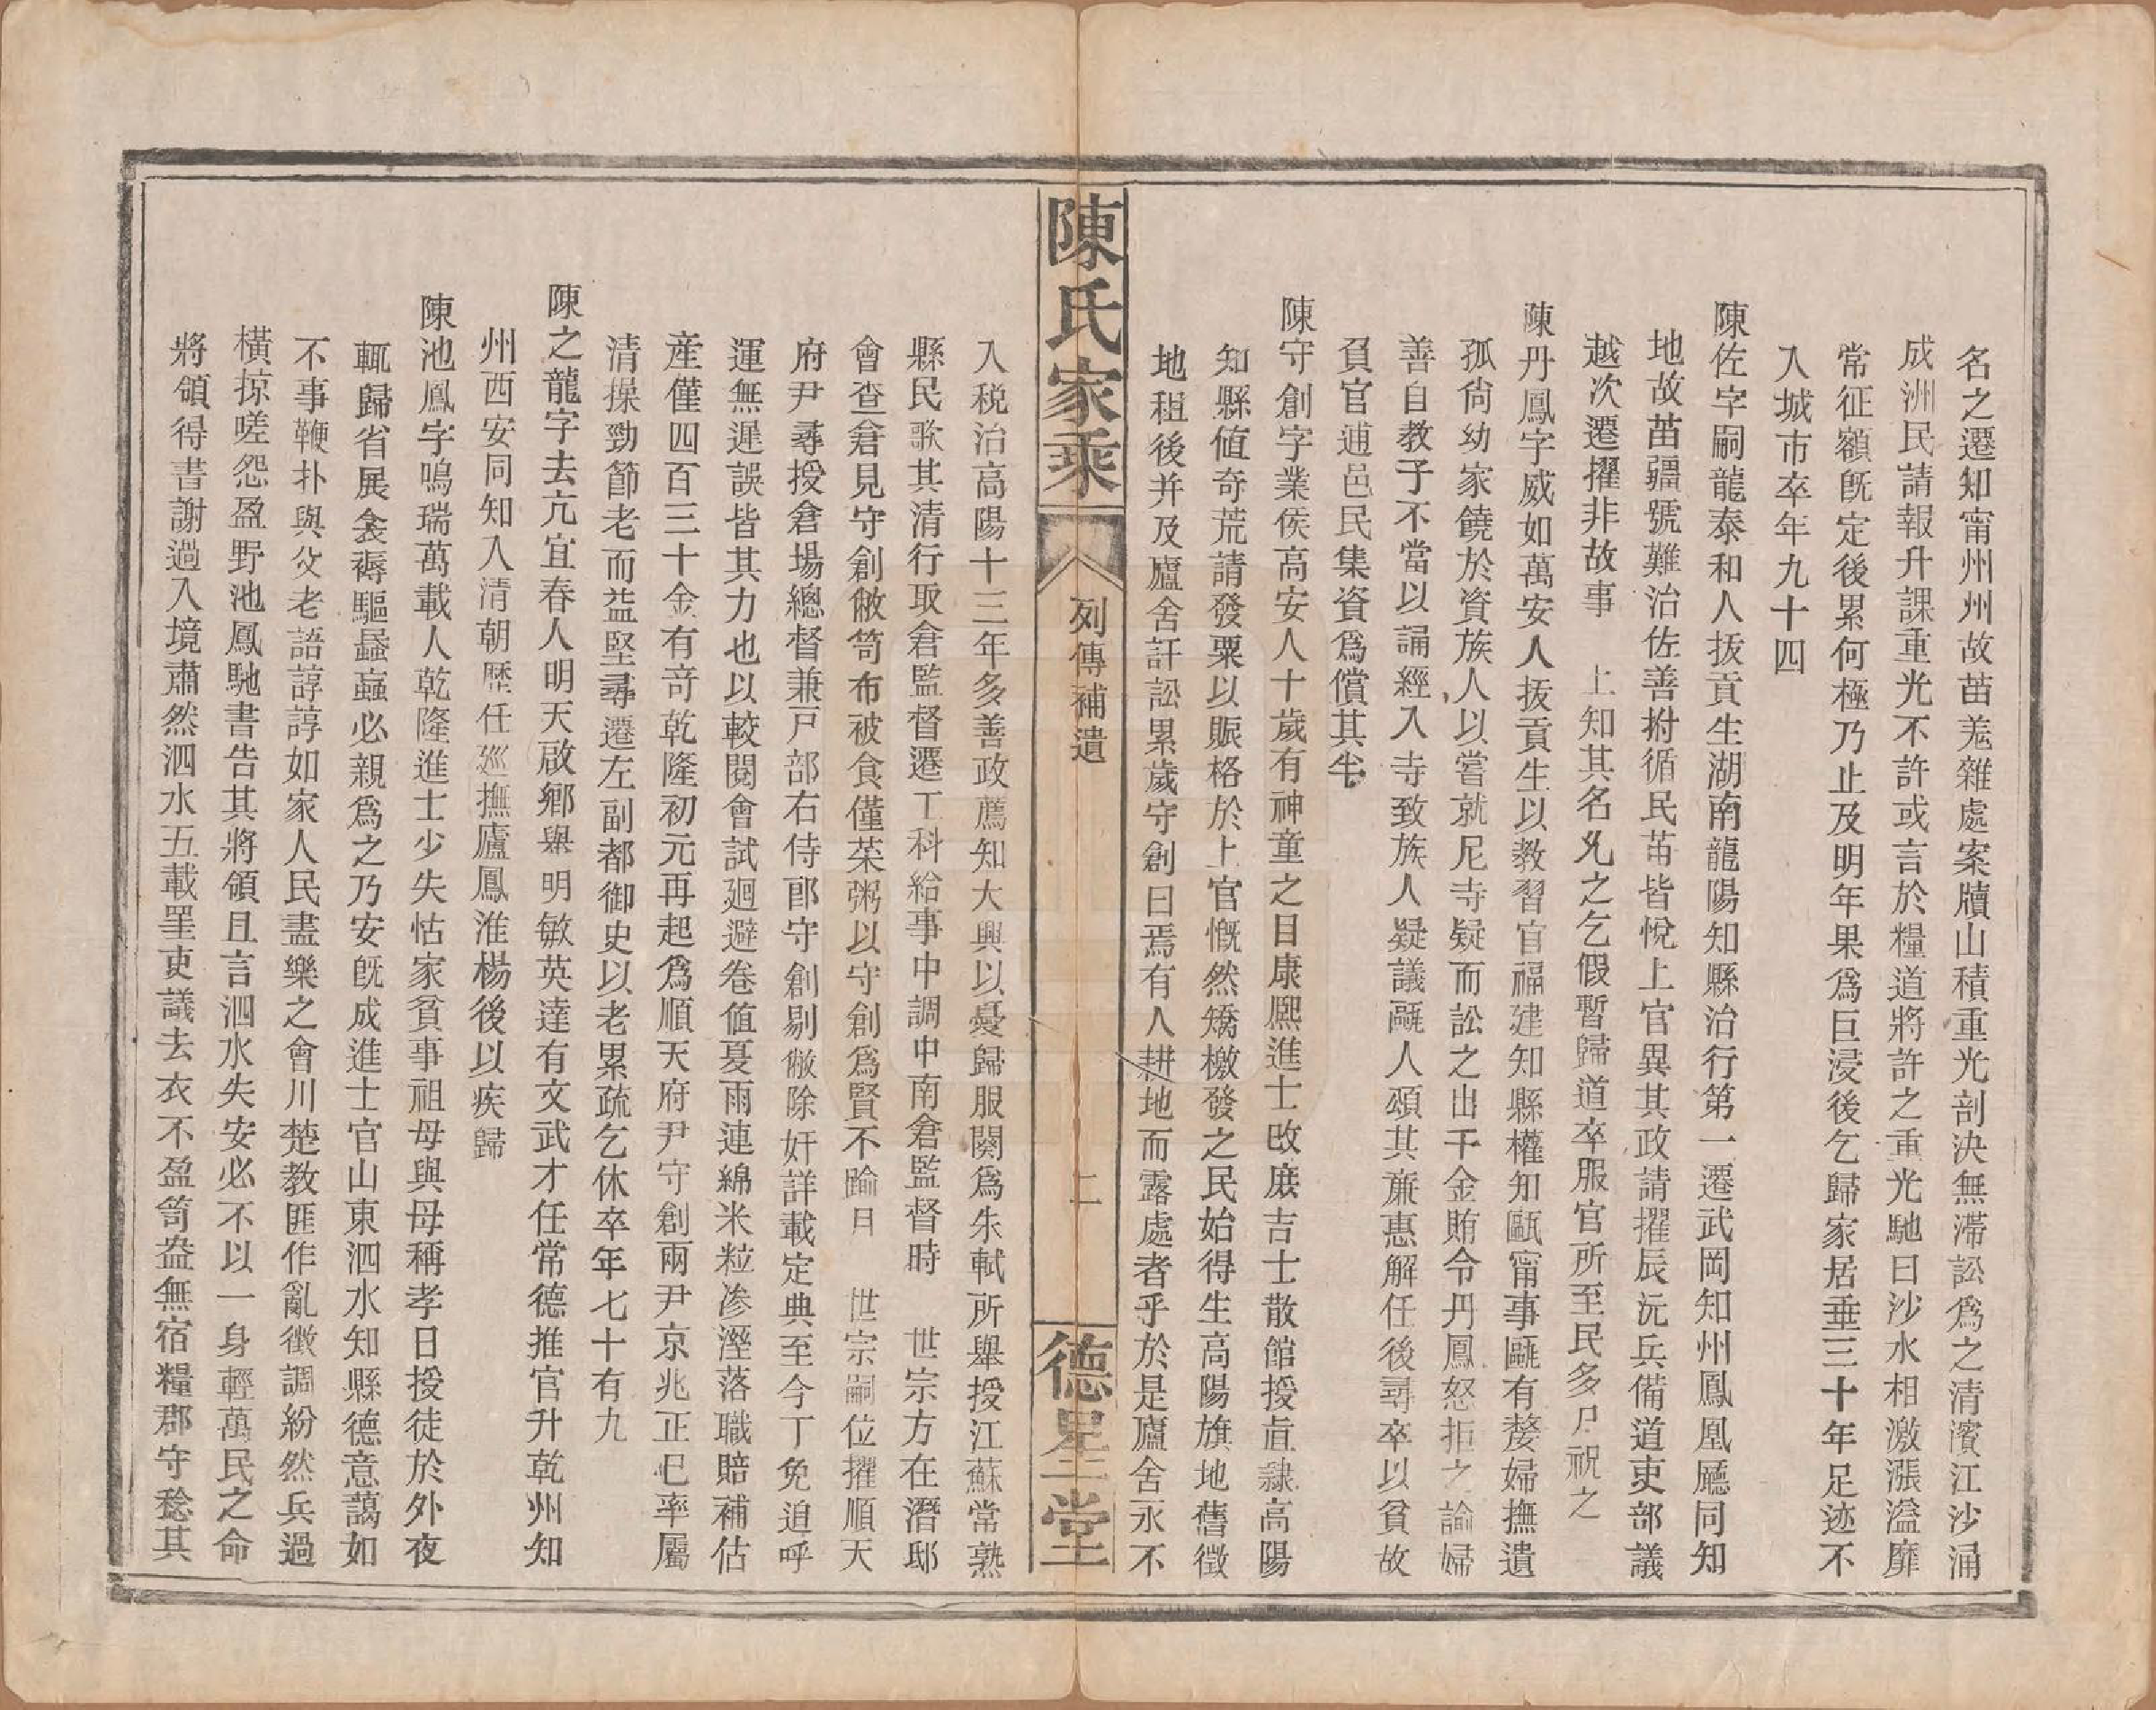 名之遷知甯州州故苗羌雜處案牘山積重光剖決無滯訟爲之清濱江沙涌
成洲民請報升課重光不許或言於糧道將許之重光馳曰沙水相激漲溢靡
常征額既定後累何極乃止及明年果爲巨浸後乞歸家居垂三十年足迹不
入城市卒年九十四
陳佐字嗣龍泰和人拔貢生湖南龍陽知縣治行第一遷武岡知州鳳凰廳同知
地故苗疆號難治佐善拊循民苗皆悅上官異其政請擢辰沅兵備道吏部議
越次遷擢非故事　上知其名允之乞假暫歸道卒服官所至民多尸祝之
陳丹鳳字威如萬安人拔貢生以教習官福建知縣權知甌甯事甌有嫠婦撫遺
孤尙幼家饒於資族人以嘗就尼寺疑而訟之出千金賄令丹鳳怒拒之諭婦
善自教子不當以誦經入寺致族人疑議甌人頌其廉惠解任後尋卒以貧故
負官逋邑民集資爲償其半
陳守創字業侯高安人十歲有神童之目康熙進士改庶吉士散館授直隷高陽
知縣值奇荒請發粟以賑格於上官慨然矯檄發之民始得生高陽旗地舊徵
地租後并及廬舍訐訟累歲守創曰焉有人耕地而露處者乎於是廬舍永不
陳氏家乘
列傳補遺
二
德星堂
入税治高陽十三年多善政薦知大興以憂歸服闋爲朱軾所舉授江蘇常熟
縣民歌其清行取倉監督遷工科給事中調中南倉監督時　世宗方在潛邸
會查倉見守創敝笥布被食僅菜粥以守創爲賢不踰日　世宗嗣位擢順天
府尹尋授倉場總督兼戸部右侍郎守創剔獘除奸詳載定典至今丁免追呼
運無遲誤皆其力也以較閱會試廻避卷值夏雨連綿米粒滲溼落職賠補估
産僅四百三十金有奇乾隆初元再起爲順天府尹守創兩尹京兆正已率屬
清操勁節老而益堅尋遷左副都御史以老累疏乞休卒年七十有九
陳之龍字去亢宜春人明天啟鄉舉明敏英達有文武才任常德推官升乾州知
州西安同知入清朝歷任巡撫廬鳳淮楊後以疾歸
陳池鳳字鳴瑞萬載人乾隆進士少失怙家貧事祖母與母稱孝日授徒於外夜
輒歸省展衾褥驅蟁蝱必親爲之乃安既成進士官山東泗水知縣德意藹如
不事鞭扑與父老語諄諄如家人民盡樂之會川楚教匪作亂徵調紛然兵過
橫掠嗟怨盈野池鳳馳書告其將領且言泗水失安必不以一身輕萬民之命
將領得書謝過入境肅然泗水五載罣吏議去衣不盈笥盎無宿糧郡守稔其